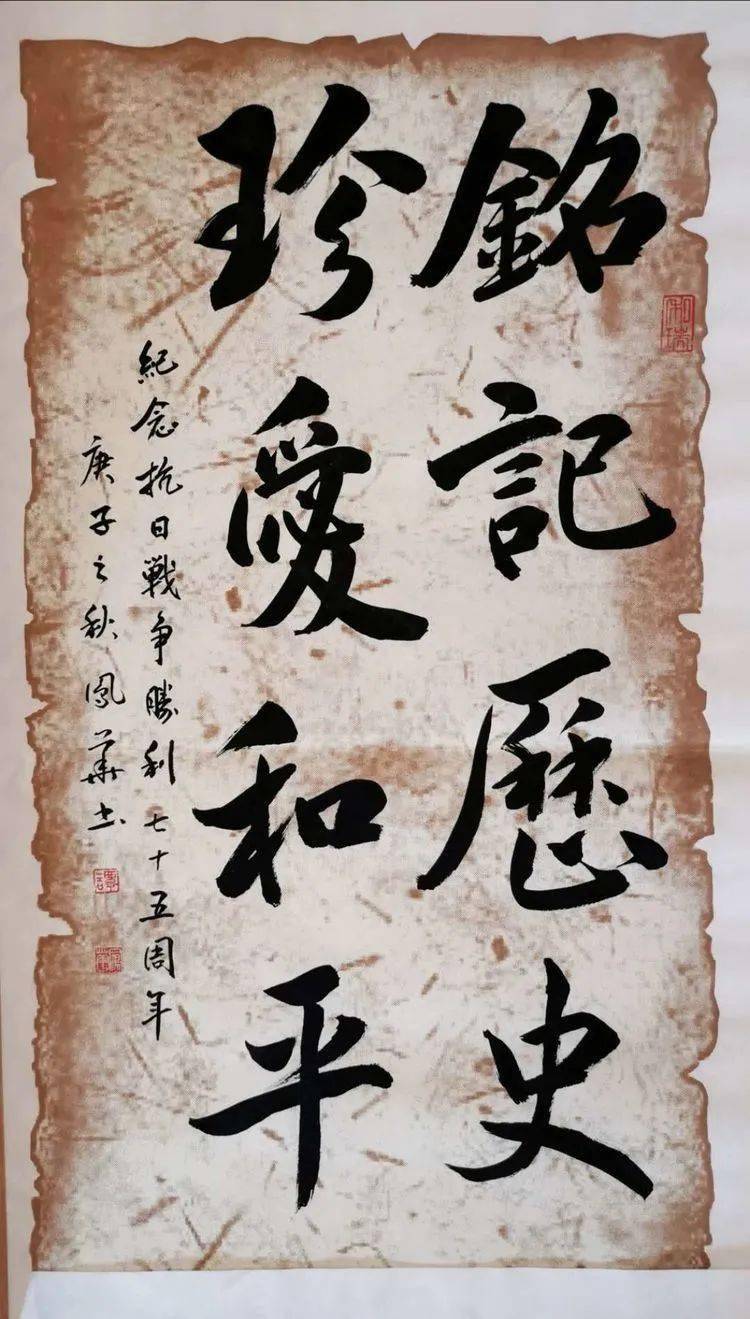 銘記歷史
珍愛和平
紀念抗日戰争勝利七十五周年
庚子之秋鳳華书